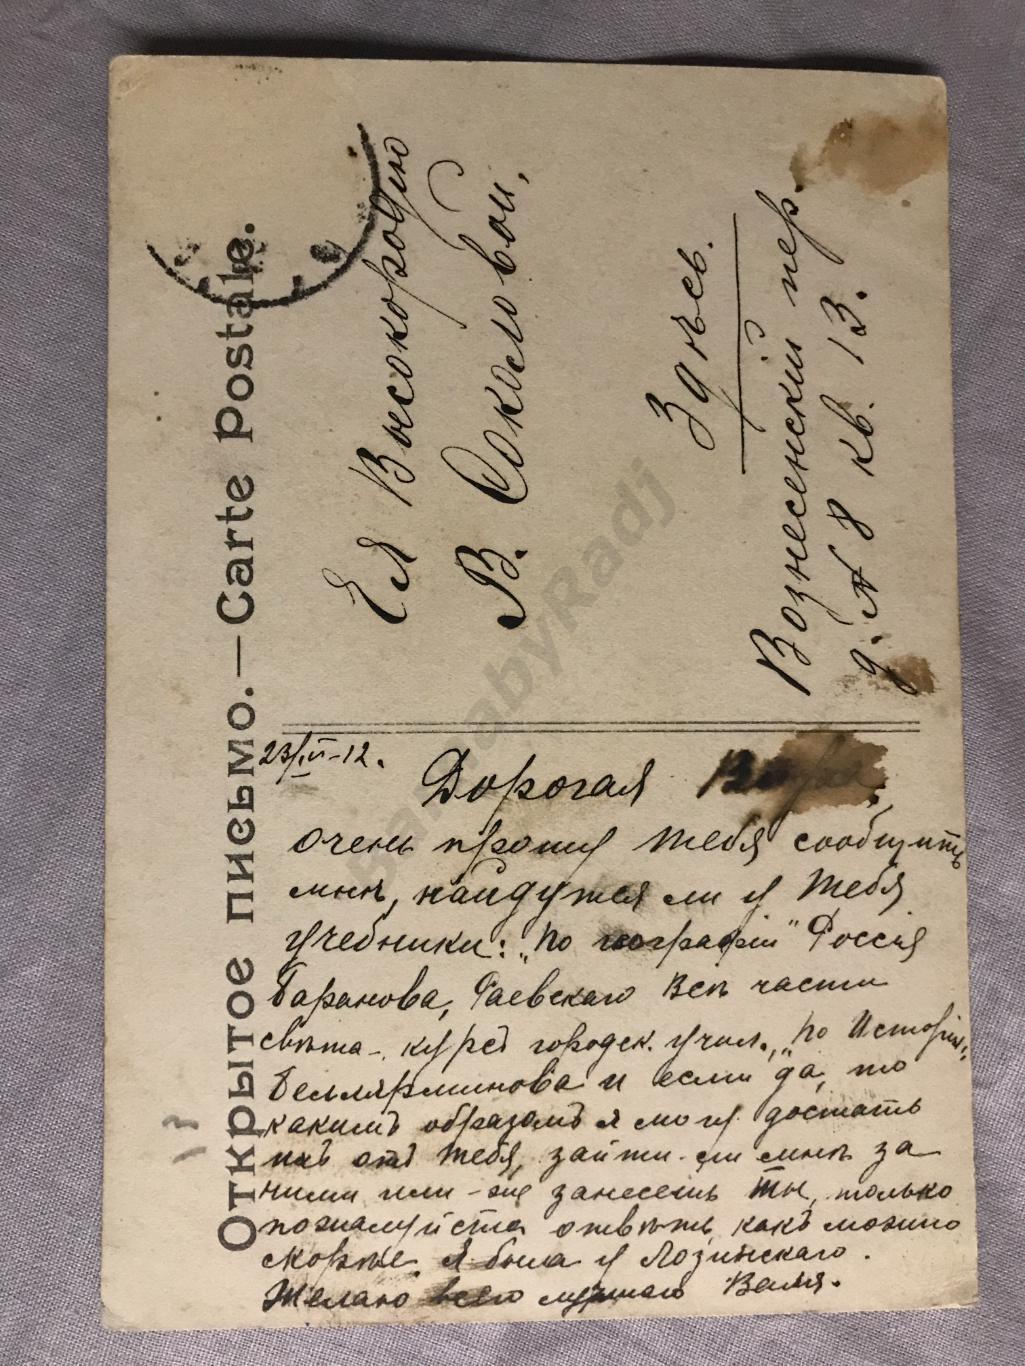 Открытое письмо.—Carte Postale.
Ея Высокородію
В. Соколовой,
Здѣсь.
Вознесенскій пер.
д. № 8 кв. 13.
23/VI-12.
Дорогая
очень прошу тебя сообщить
мнѣ, найдутся ли у тебя
учебники: „по географіи" Россія
Баранова, Раевскаго Всѣ части
свѣта-, курсъ городск. учил., „по Исторіи„
Беллярминова и если да, то
какимъ образомъ я могу достать
ихъ отъ тебя, зайти-ли мнѣ за
ними или-же занесешь ты, только
пожалуйста отвѣть, какъ можно
скорѣе. Я была у Лозинскаго.
Желаю всего лучшаго Валя.
BabyRadj